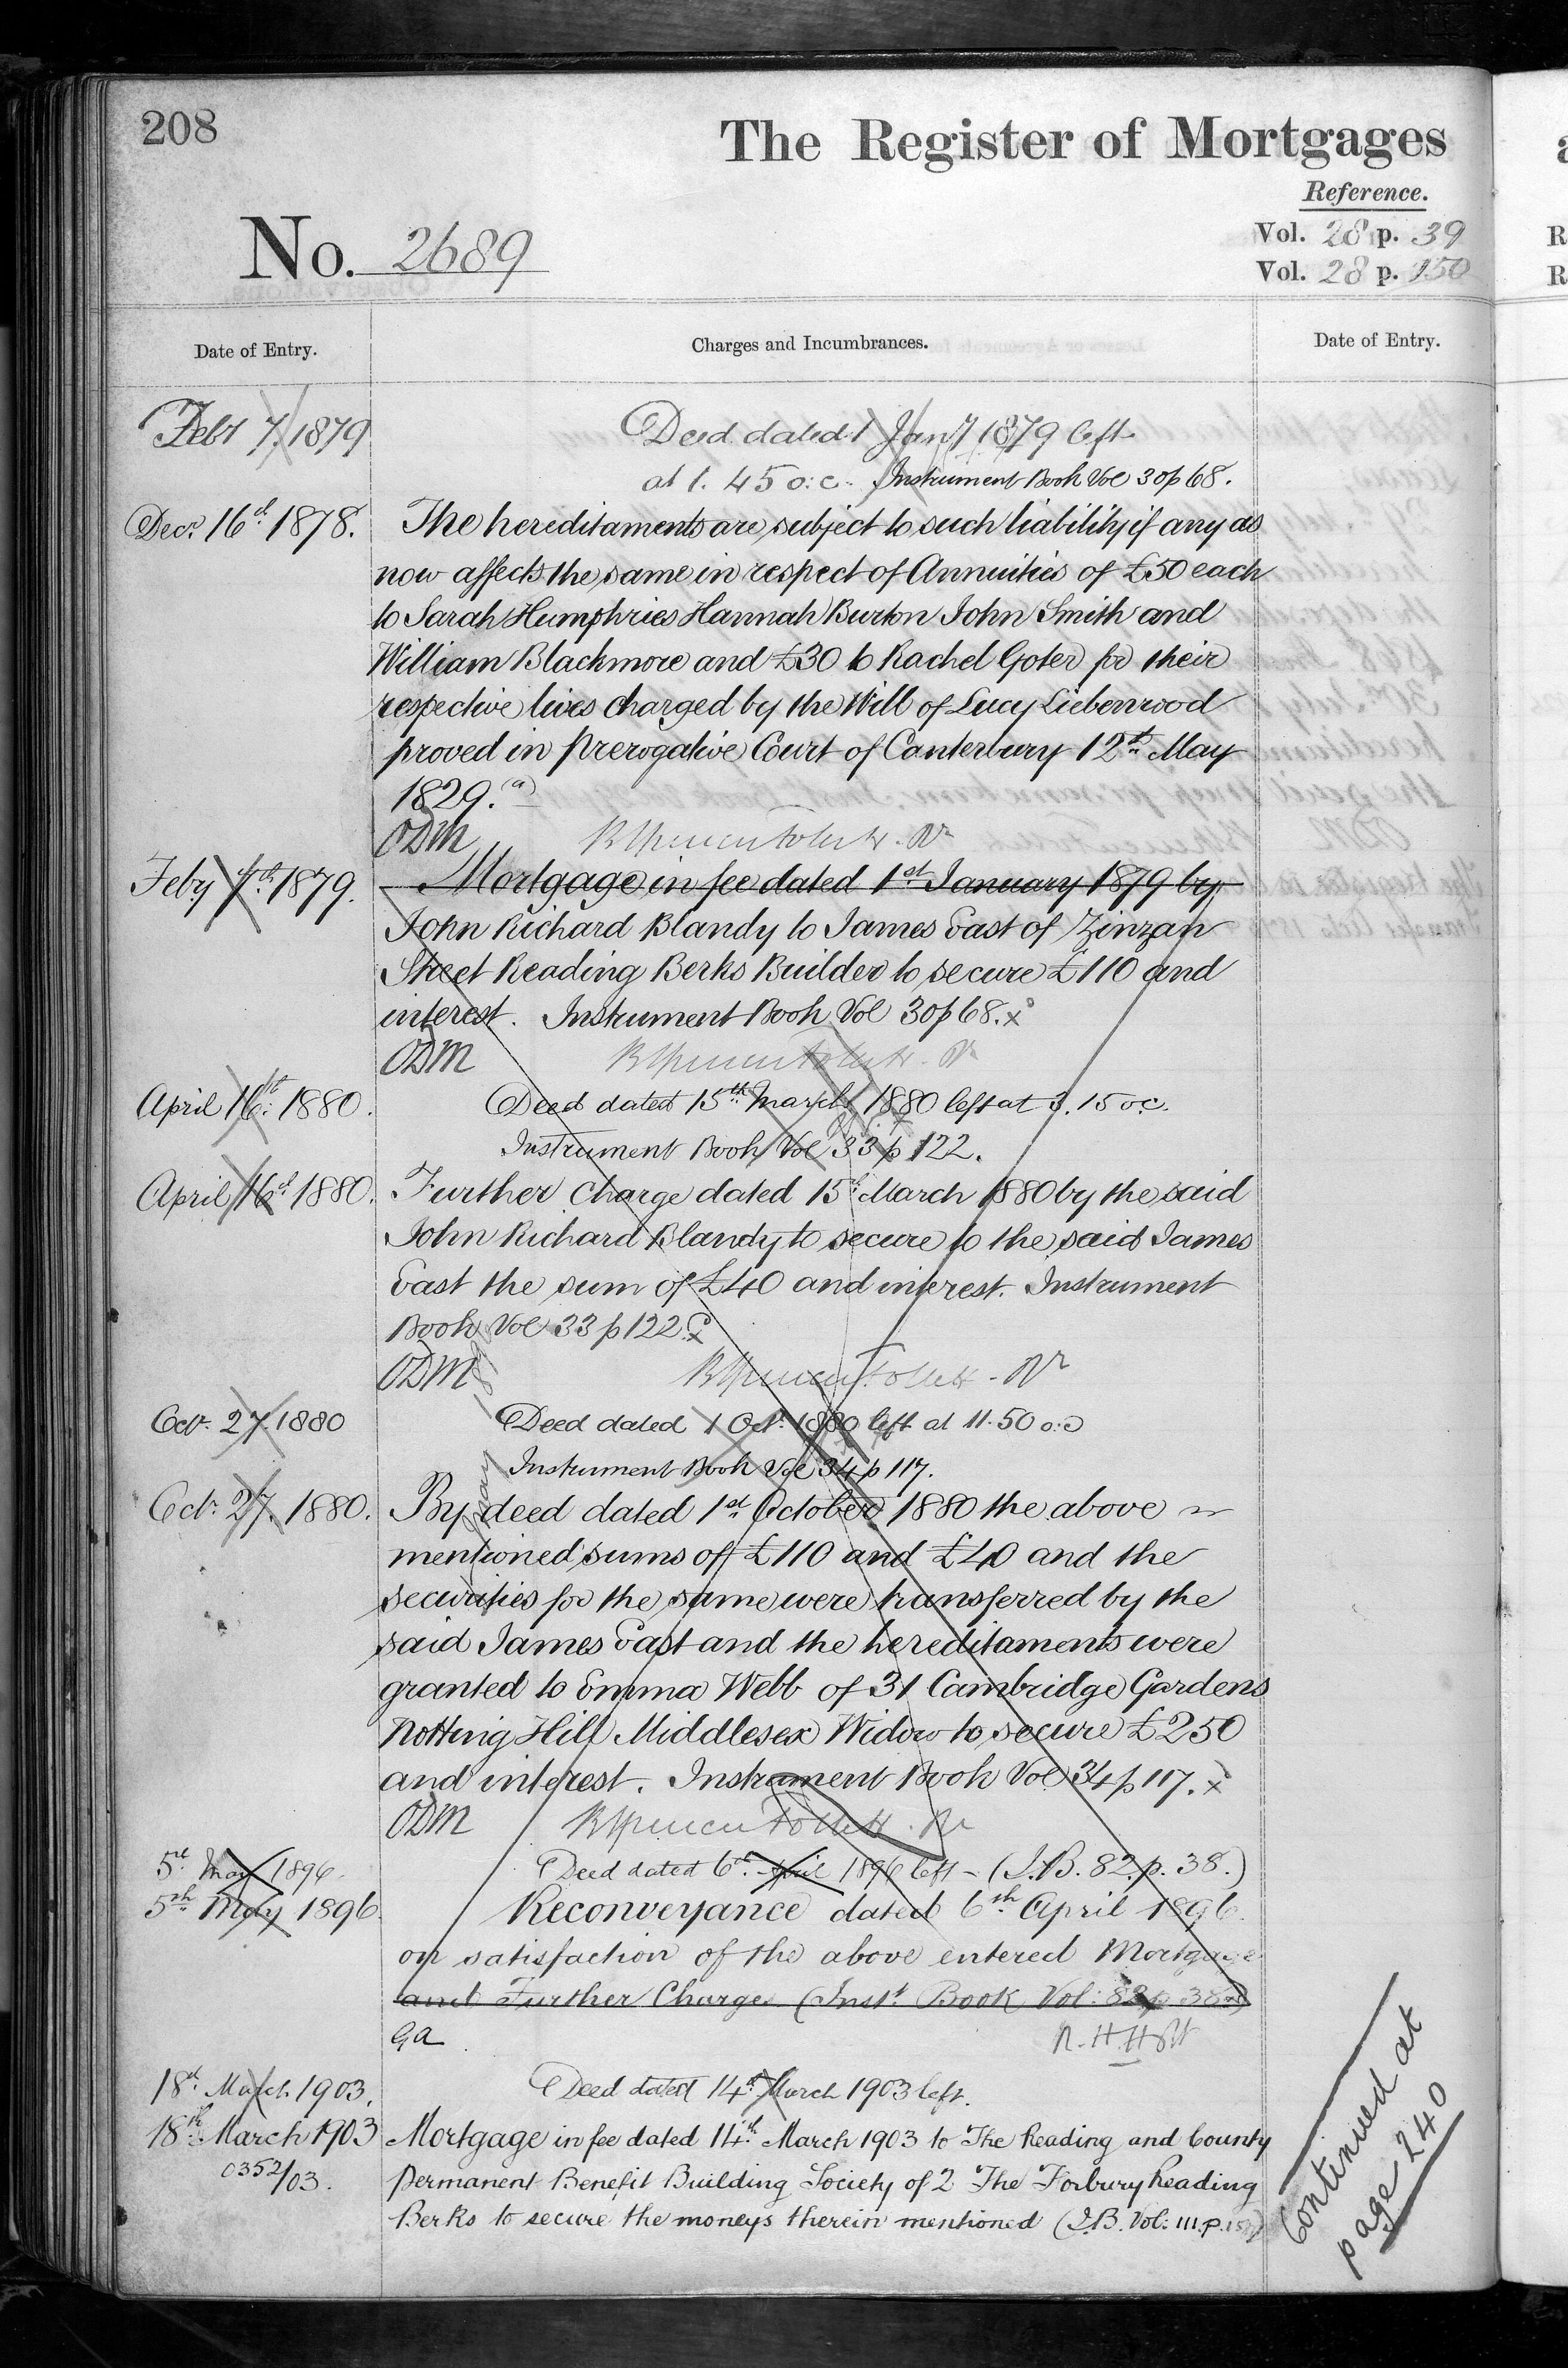 208
The Register of Mortgages
Reference.
No. 2689
Vol. 28 p. 39
Vol. 28 p. 150
Date of Entry.
Charges and Incumbrances.
Date of Entry.
Feby 7. 1879
Deed dated 1 Jany 1879 left
at 1. 45 o.c. Instrument Book Vol 30 p 68.
Decr. 16th 1878.
The hereditaments are subject to such liability if any as
now affects the same in respect of Annuities of £50 each
to Sarah Humphries Hannah Burton John Smith and
William Blackmore and £30 to Rachel Goter for their
respective lives charged by the Will of Lucy Liebenrood
proved in Prerogative Court of Canterbury 12th May
1829. (a)
ODM
Feby 7th 1879.
Mortgage in fee dated 1st January 1879 by
John Richard Blandy to James East of Zinzan
Street Reading Berks Builder to secure £110 and
interest. Instrument Book Vol 30 p 68. x
ODM
April 16th 1880.
Deed dated 15th March 1880 left at 3. 15 o.c.
Instrument Book Vol 33 p 122.
April 16th 1880.
Further Charge dated 15th March 1880 by the said
John Richard Blandy to secure to the said James
East the sum of £40 and interest. Instrument
Book Vol 33 p 122. x
ODM
Oct. 27. 1880
Deed dated 1 Oct. 1880 left at 11.50 o.c
Instrument Book Vol 34 p 117.
Oct. 27. 1880.
By deed dated 1st October 1880 the above
mentioned sums of £110 and £40 and the
securities for the same were transferred by the
said James East and the hereditaments were
granted to Emma Webb of 31 Cambridge Gardens
Notting Hill Middlesex Widow to secure £250
and interest. Instrument Book Vol 34 p 117. x
ODM
5th May 1896.
Deed dated 6th April 1896 left - (I.B. 82. p. 38.)
5th May 1896
Reconveyance dated 6th April 1896
on satisfaction of the above entered Mortgage
and Further Charges (Inst. Book Vol: 82 p 38)
GA
18th March 1903.
Deed dated 14th March 1903 left.
18th March 1903
0352/03.
Mortgage in fee dated 14th March 1903 to The Reading and County
Permanent Benefit Building Society of 2 The Forbury Reading
Berks to secure the moneys therein mentioned (I.B. Vol: 111. p.
Continued at
page 240